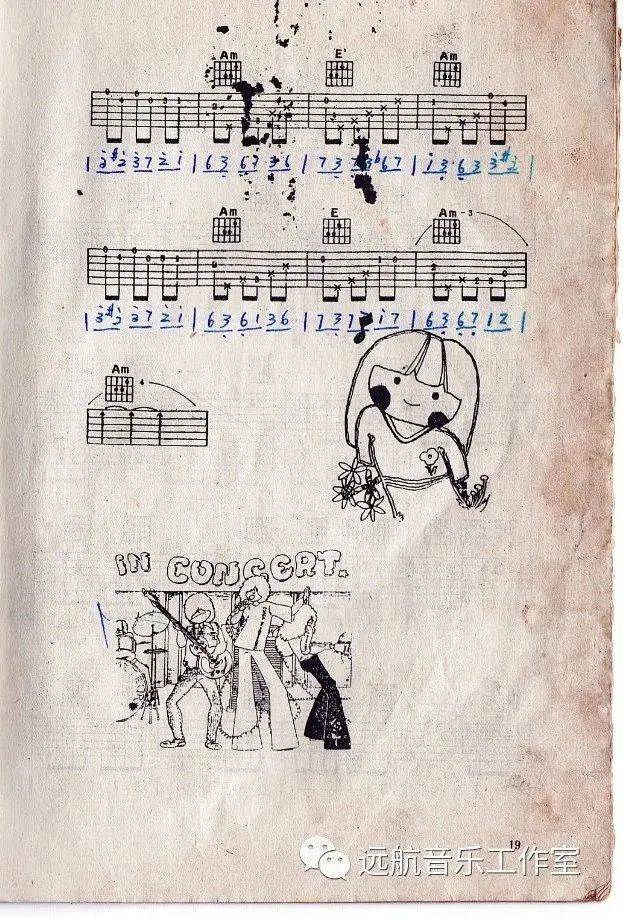 Am E Am
0 4 0 0 3 1
| 3 #2 3 7 2 1 | 6 3 6 1 3 6 | 7 3 7 3 b6 7 | 1 3 6 3 3 #2 |
Am E Am -3
0 4 0 0 3 1
| 3 #2 3 7 2 1 | 6 3 6 1 3 6 | 7 3 7 2 1 7 | 6 3 6 7 1 2 |
Am 4
IN CONCERT.
19
远航音乐工作室